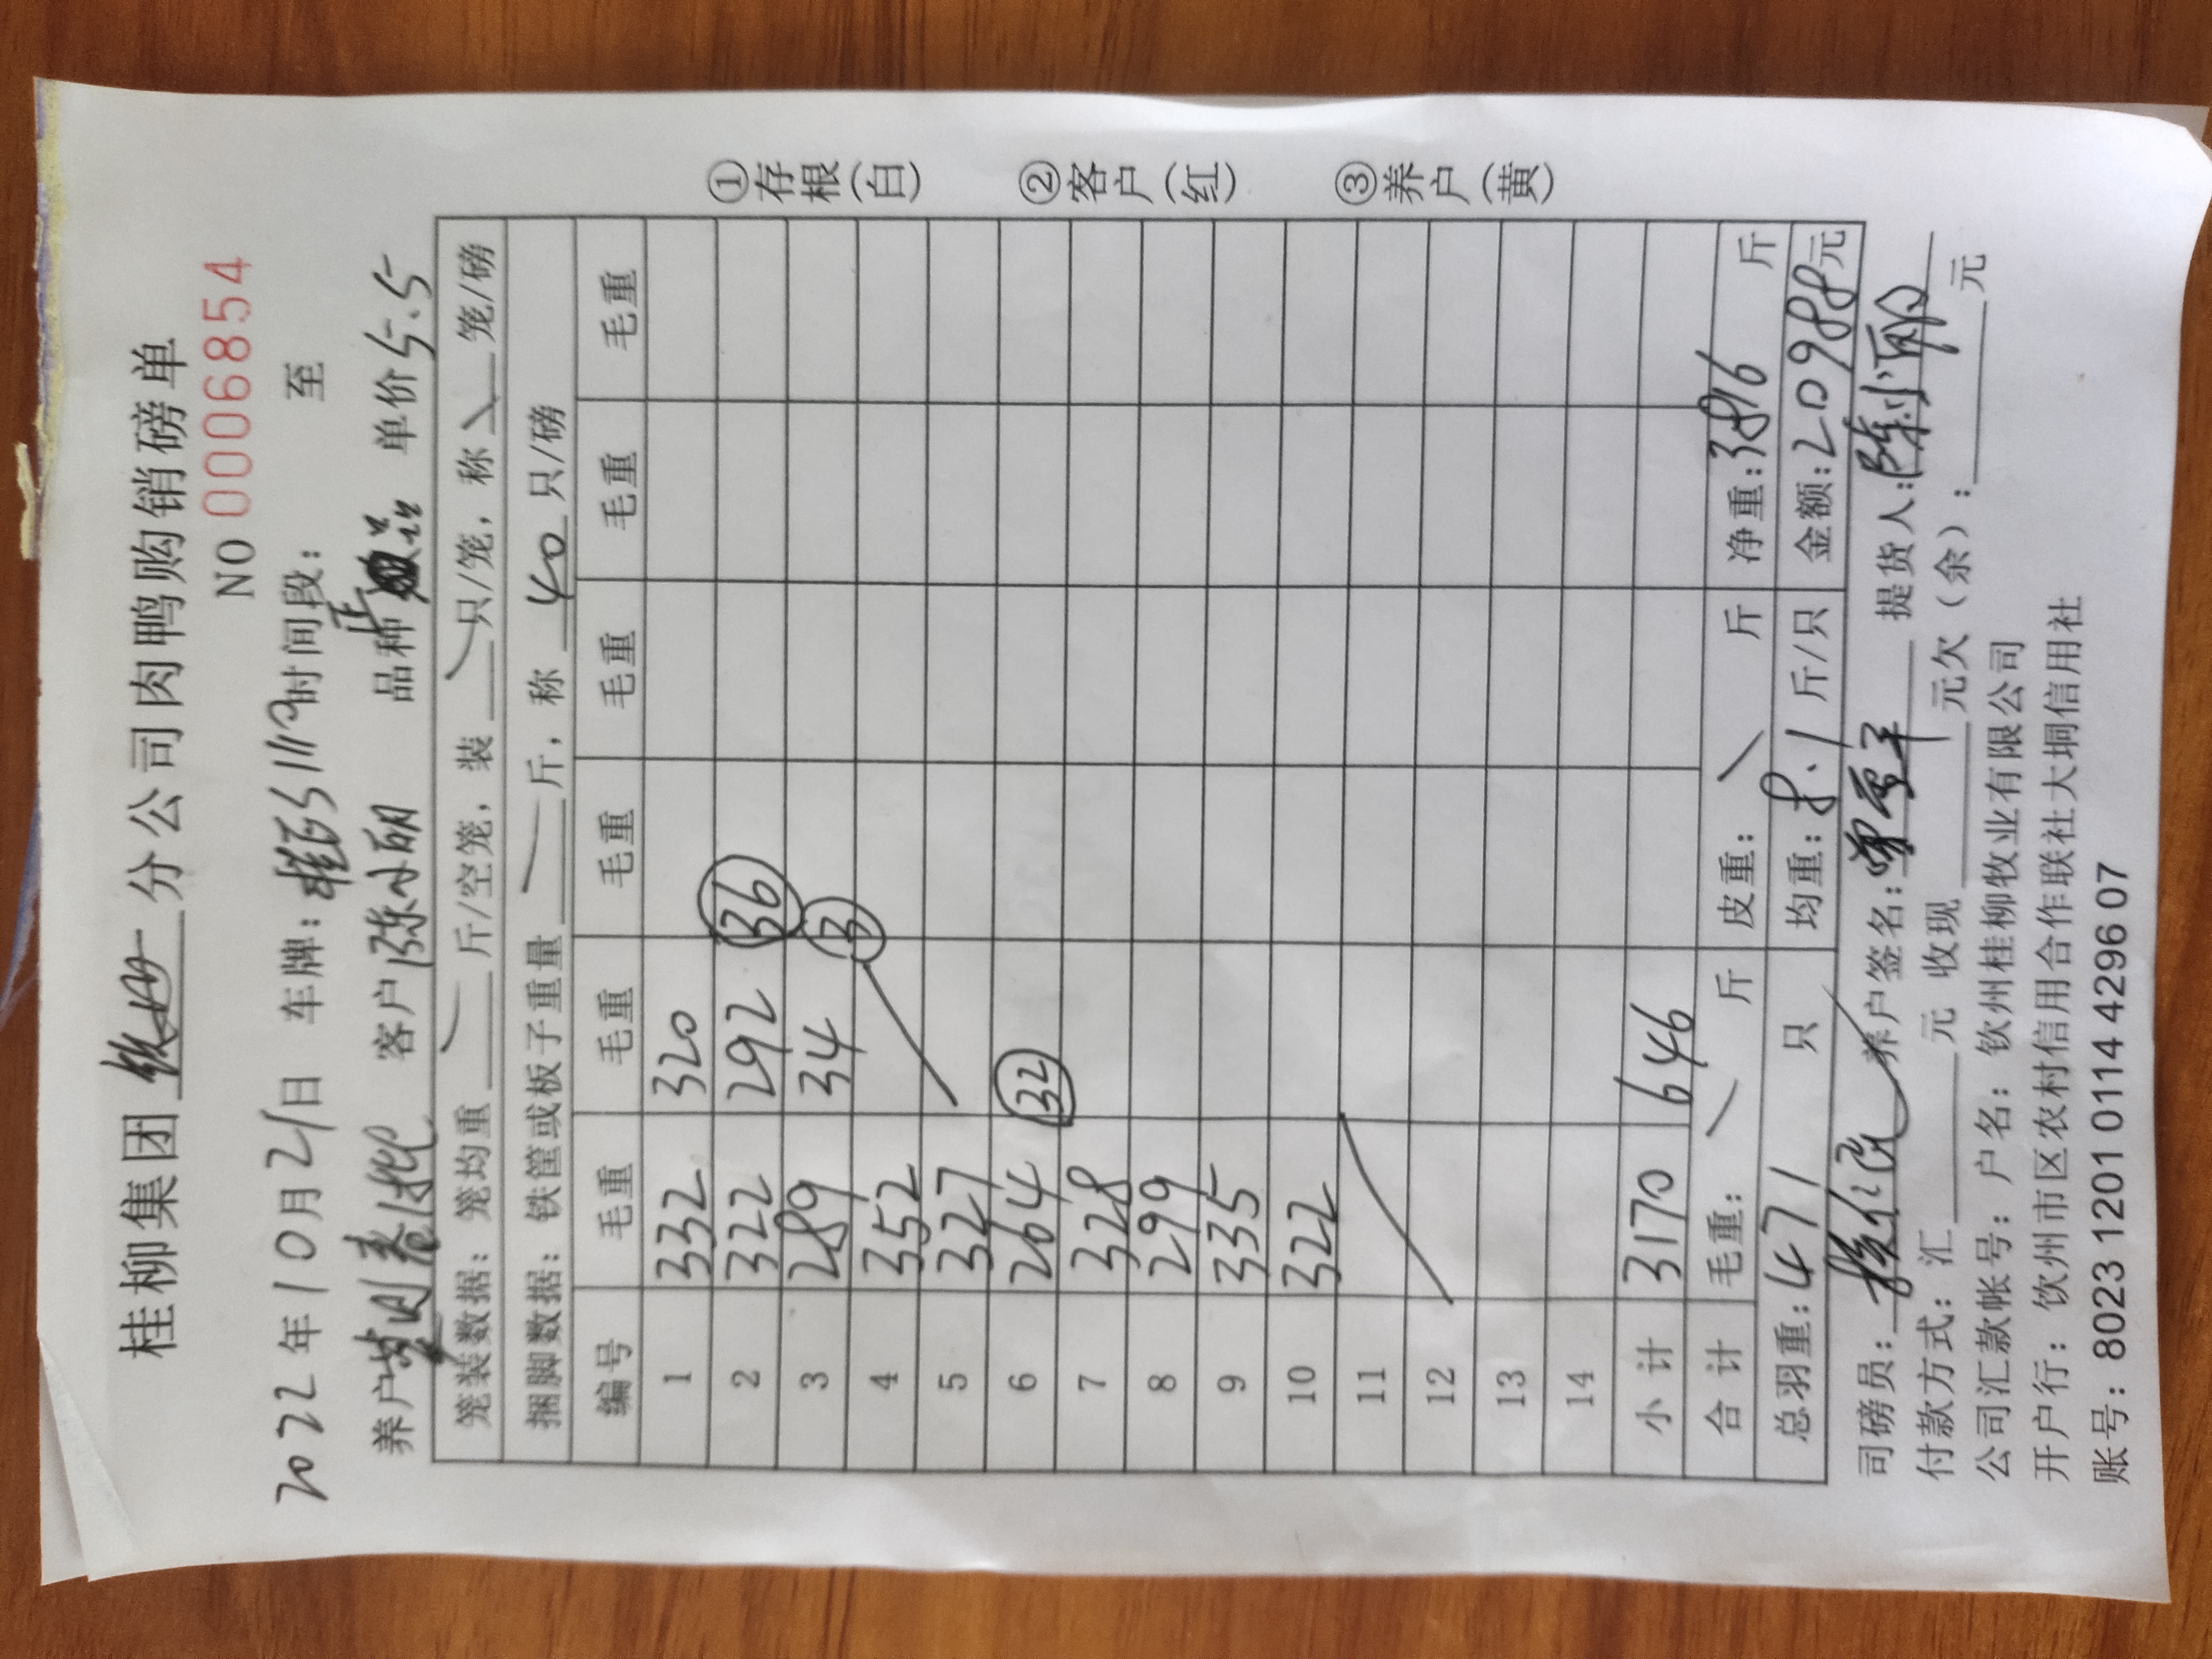 桂柳集团 钦州 分公司肉鸭购销磅单
NO 0006854
2022年10月21日 车牌: 时间段: 至
养户 客户 陈小丽 品种 单价 5.5
笼装数据:笼均重 斤/空笼,装 只/笼,称 笼/磅
捆脚数据:铁筐或板子重量 斤,称 40 只/磅
编号 毛重 毛重 毛重 毛重 毛重 毛重
1 332 320
2 322 292 36
3 289 34 3
4 352
5 327
6 264 32
7 328
8 299
9 335
10 322
11
12
13
14
小计 3170 646
合计 毛重: 斤 皮重: 斤 净重:3816 斤
总羽重:471 只 均重:8.1 斤/只 金额:20988元
司磅员: 养户签名: 提货人:陈小丽
付款方式:汇 元 收现 元欠(余): 元
公司汇款帐号:户名:钦州桂柳牧业有限公司
开户行:钦州市区农村信用合作联社大垌信用社
账号:8023 1201 0114 4296 07
①存根(白) ②客户(红) ③养户(黄)